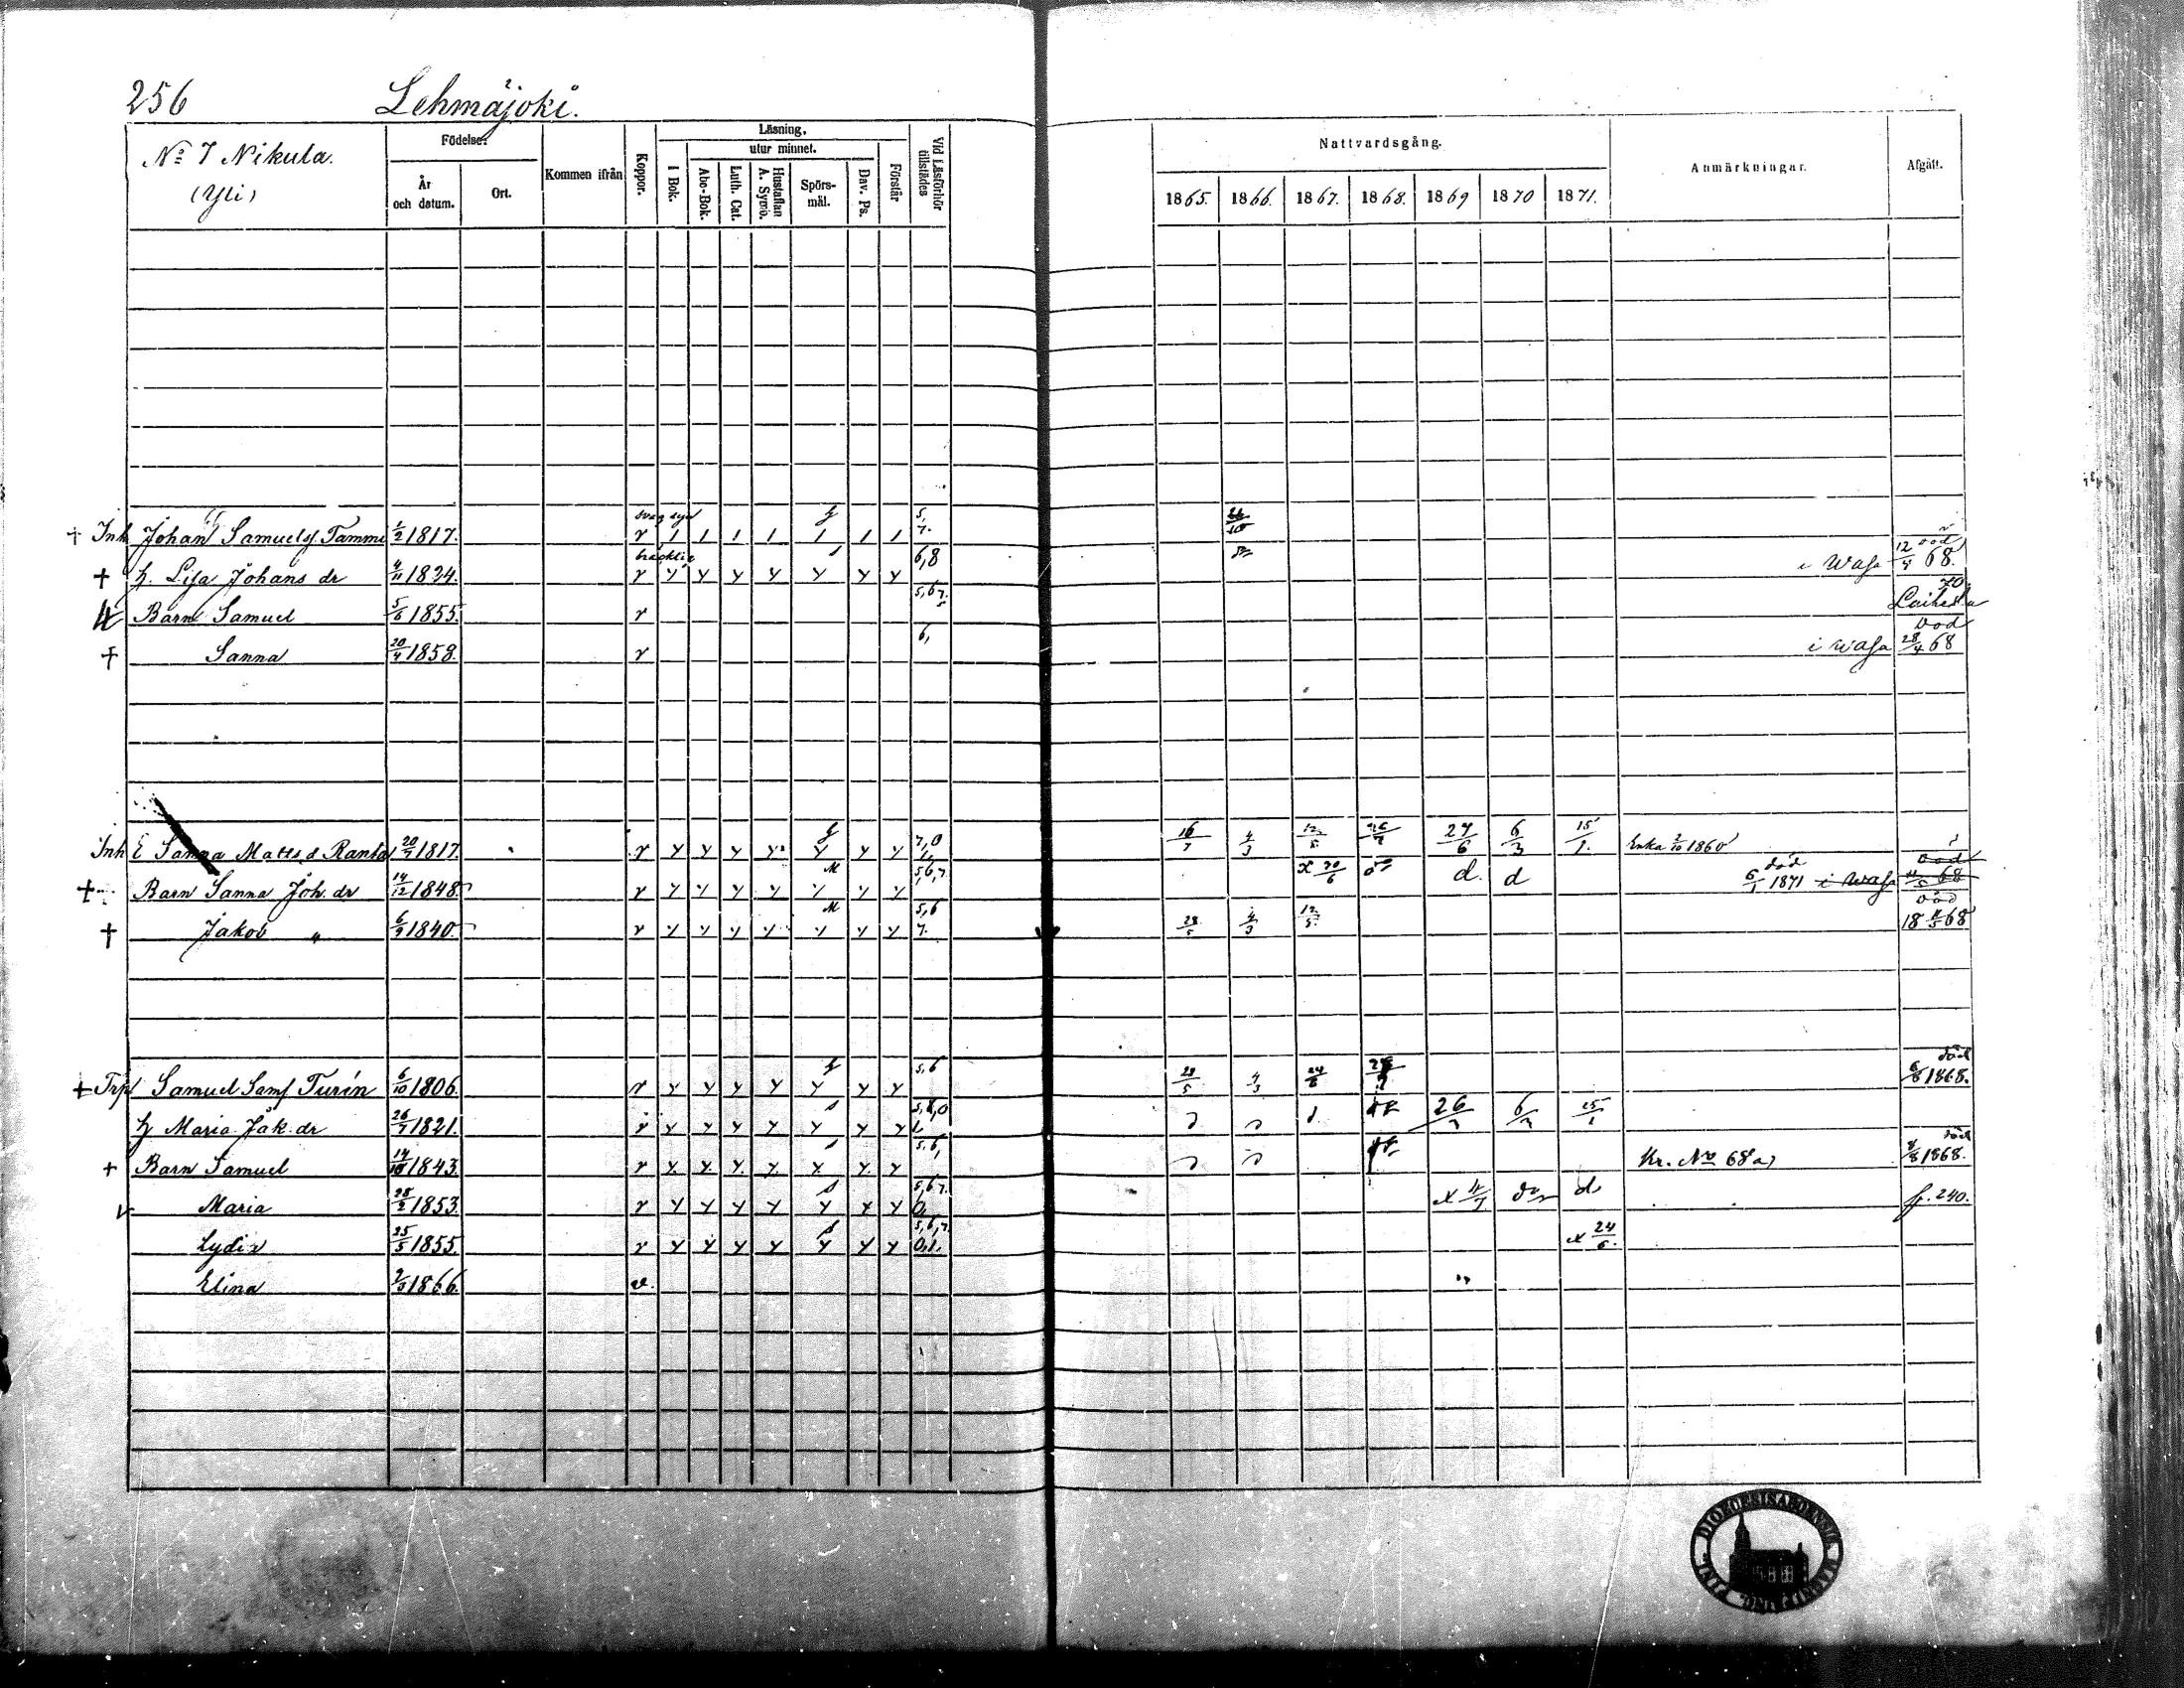 256 Lehmäjoki.
No 7 Nikula.
(Yli)
Födelse
År och datum.
Ort.
Kommen ifrån
Koppor.
Läsning.
I Bok.
utur minnet.
Abc-Bok.
Luth. Cat.
Hustaflan A. Symb.
Spörs-mål.
Dav. Ps.
Förstår
Vid Läsförhör tillstädes
Nattvardsgång.
1865. 1866. 1867. 1868. 1869 1870 1871.
Anmärkningar.
Afgått.
† Inh Johan Samuels. Tammi 2/2 1817. svag syn v 1 1 1 1 1 1 1 5, 7.
† h. Lisa Johans dr 4/11 1824. bräcklig v y y y y y y y 6,8 i Wasa 12/4 död 68.
Barn Samuel 5/6 1855. v 5,6,7. 70 Laihela
† Sanna 20/4 1858. v 6, i Wasa 28/4 död 68
Inh E Sanna Matts d Ranta 20/7 1817. v y y y y y y y 7,0 16/7 4/3 12/5 27/6 6/3 15/1. Enka 2/10 1860
† Barn Sanna Joh. dr 14/12 1848. v y y y y y y y 5,6,7 x 30/6 d. d död 6/1 1871 i Wasa död 11/5 68
† Jakob " 6/9 1840. v y y y y y y y 5,6 7. 28/5 4/3 12/5. död 18 11/5 68
† Trp Samuel Sams Turin 6/10 1806. v y y y y y y y 5,6 28/5 4/3 24/6 död 6/8 1868.
h Maria Jak. dr 26/7 1821. v y y y y y y y 5,8,0 26/7 6/3 25/1
† Barn Samuel 14/10 1843. v y y y y y y y 5,6, Kr. No 68 a) död 8/8 1868.
v Maria 28/2 1853 v y y y y y y y 5,6,7. 0, x 11/7 do d fr. 240.
Lydia 25/5 1855. v y y y y y y y 5,6,7. 0,1. x 24/6.
Elina 2/3 1866. v.